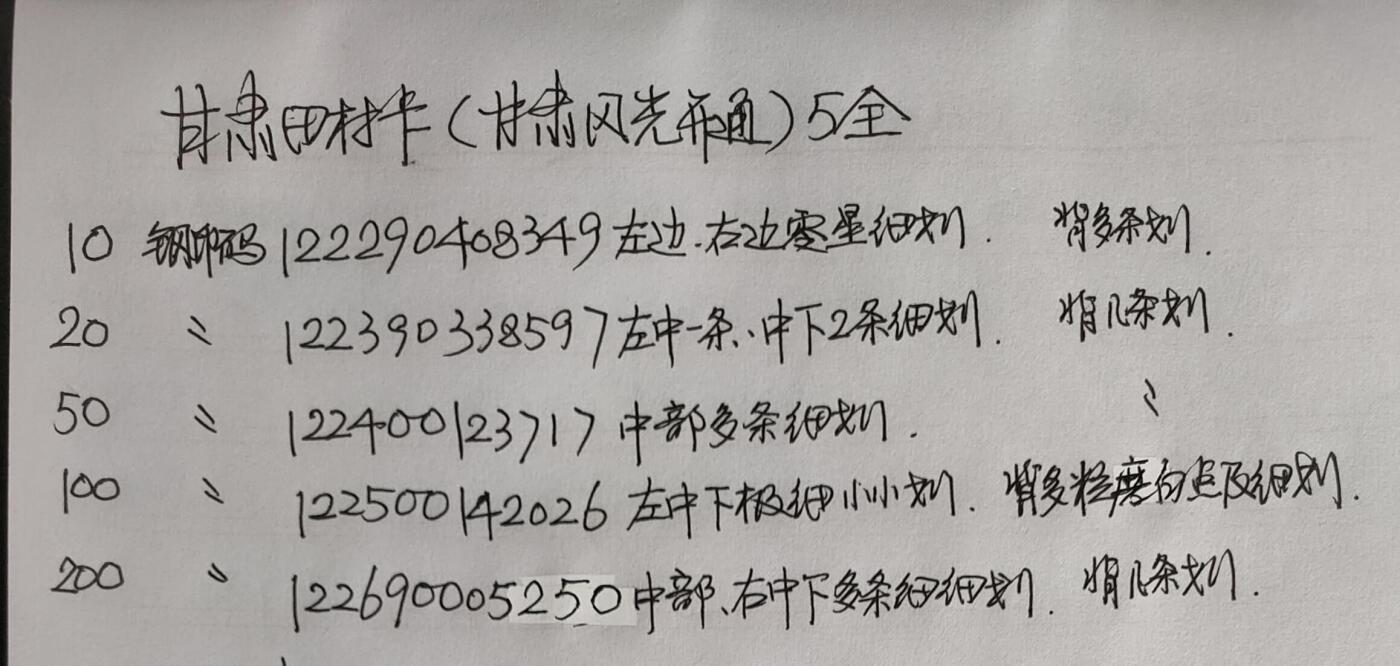 甘肃田村卡(甘肃风光开通)5全
10 钢印码 122290408349 左边.右边零星细划. 背多条划.
20 〃 122390338597 左中一条、中下2条细划. 背几条划.
50 〃 122400123717 中部多条细划. 〃
100 〃 122500142026 左中下极细小小划. 背多粒磨白点及细划.
200 〃 122690005250 中部、右中下多条细细划. 背几条划.